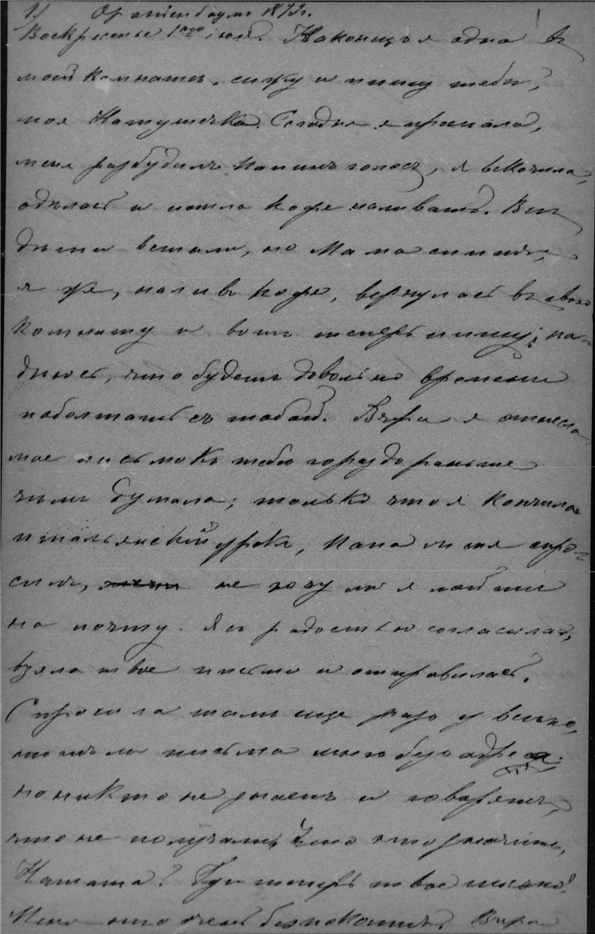 1) 1873 г.
Воскресенье 1ого июля. Наконецъ я одна въ
моей комнатѣ, сижу и пишу тебѣ,
моя Натушечка. Сегодня я проспала,
меня разбудилъ Папинъ голосъ, я вскочила,
одѣлась и пошла кофе наливать. Всѣ
дѣти встали, но Мама спитъ,
я же, наливъ кофе, вернулась въ свою
комнату и вотъ теперь пишу; на-
дѣюсь, что будетъ довольно времени
поболтать съ тобой. Вчера я отнесла
мое письмо къ тебѣ гораздо раньше
чѣмъ думала; только что я кончила
итальянскій урокъ, Папа меня спро-
силъ, не хочу ли я пойти
на почту. Я съ радостью согласилась,
взяла твое письмо и отправилась.
Спросила тамъ еще разъ у всѣхъ,
нѣтъ ли письма мнѣ безъ адреса.
но никто не знаетъ и говорятъ,
что не получали. Что это значитъ,
Наташа? Гдѣ теперь твое письмо?
Меня это очень безпокоитъ. Вчера